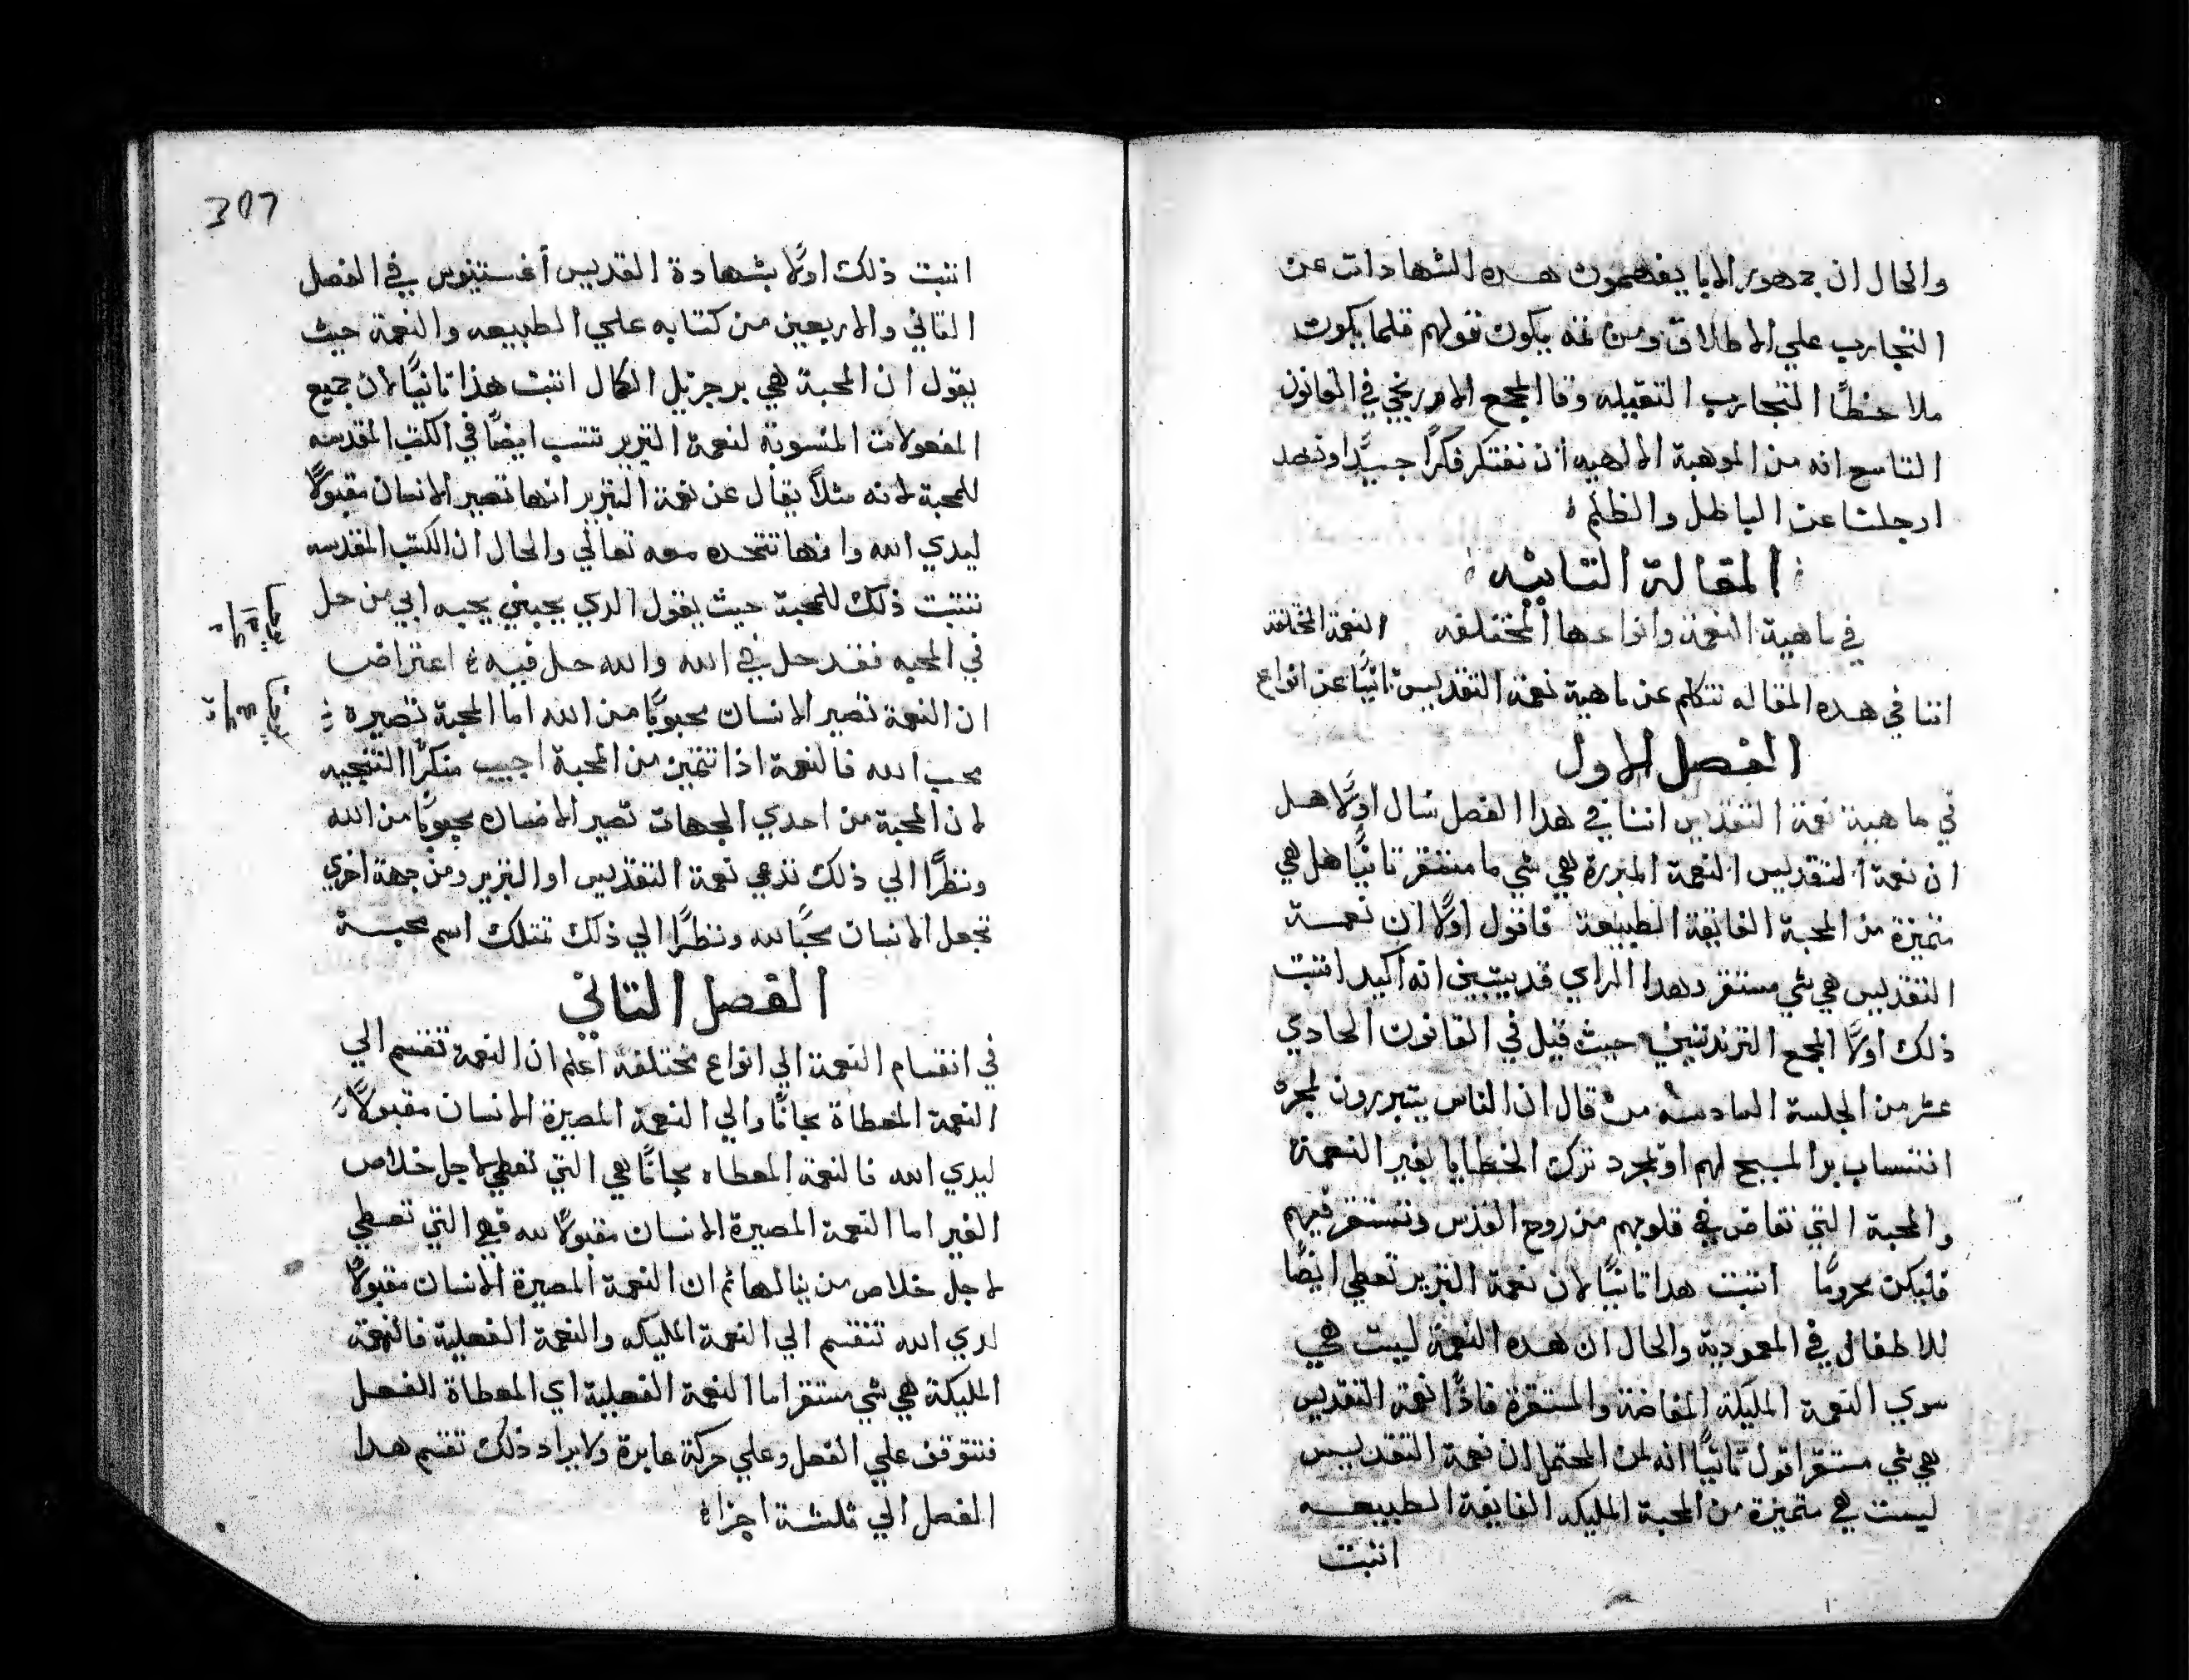 والحال ان جمهور الابا يفهمون هده الشهادات عن
التجارب علي الاطلاق ومن تمه يكون قولهم قلما يكون
ملاحظًا التجارب التقيله وقا المجمع الاوريجي في القانون
التاسع انه من الموهبة الالهيه ان نفتكر فكرًا جيدًا ونصد
ارجلنا عن الباطل والظلم
المقالة التانيه
في ماهية النعمة وانواعها المختلفه
النعمة المختلفه
اننا في هده المقاله نتكلم عن ماهية نعمة التقديس تانيًا عن انواع
الفصل الاول
في ماهية نعمة التقديس اننا في هدا الفصل نسال اولًا هل
ان نعمة التقديس النعمة المبررة هي شي ما مستقر تانيًا هل هي
متميزة من المحبة الفايقة الطبيعة فاقول اولًا ان نعمة
التقديس هي شي مستقر وهدا الراي قد يبين انه اكيد اتبت
ذلك اولًا المجمع التريدنتيني حيث قيل في القانون الحادي
عشر من الجلسة السادسه من قال ان الناس يتبررون لمجرد
انتساب بر المسيح لهم او لمجرد ترك الخطايا بغير النعمة
والمحبة التي تفاض في قلوبهم من روح القدس وتستقر فيهم
فليكن محرومًا اتبت هدا تانيًا لان نعمة التبرير تعطي ايضًا
للاطفال في المعودية والحال ان هده النعمة ليست هي
سوي النعمة المليكة المفاضة والمستقرة فاذًا نعمة التقديس
هي شي مستقر اقول تانيًا انه لمن المحتمل ان نعمة التقديس
ليست هي متميزة من المحبة المليكه الفايقة الطبيعه
اتبت
307
اتبت ذلك اولًا بشهادة القديس أغستينوس في الفصل
التاني والاربعين من كتابه علي الطبيعه والنعمة حيث
يقول ان المحبة هي بر جزيل الكمال اتبت هذا تانيًا لان جميع
المفعولات المنسوبة لنعمة التبرير تنسب ايضًا في الكتب المقدسه
للمحبة لانه مثلًا يقال عن نعمة التبرير انها تصير الانسان مقبولًا
ليدي الله وانها تتحده معه تعالي والحال ان الكتب المقدسه
تتبت ذلك للمحبة حيث يقول الدي يحبني يحبه ابي من حل
في المحبه فقد حل في الله والله حل فيه اعتراض
ان النعمة تصير الانسان محبوبًا من الله اما المحبة تصيره
محب الله فالنعمة اذا تتميز من المحبة اجيب منكرًا النتيجيه
لان المحبة من احدي الجهات تصير الانسان محبوبًا من الله
ونظرًا الي ذلك تدعي نعمة التقديس او التبرير ومن جهة اخري
تجعل الانسان محبًا لله ونظرًا الي ذلك تمتلك اسم محبة
الفصل التاني
في انقسام النعمة الي انواع مختلفة اعلم ان النعمة تنقسم الي
النعمة المعطاة مجانًا والي النعمة المصيرة الانسان مقبولًا
ليدي الله فالنعمة المعطاه مجانًا هي التي تعطي لاجل خلاص
الغير اما النعمة المصيرة الانسان مقبولًا لله فهي التي تعطي
لاجل خلاص من ينالها تم ان النعمة المصيرة الانسان مقبولًا
لدي الله تنقسم الي النعمة المليكه والنعمة الفعلية فالنعمة
المليكة هي شي مستقر اما النعمة الفعلية اي المعطاة الفعل
فتتوقف علي الفعل وعلي حركة عابرة ولايراد ذلك تقسم هدا
الفصل الي ثلثة اجزا